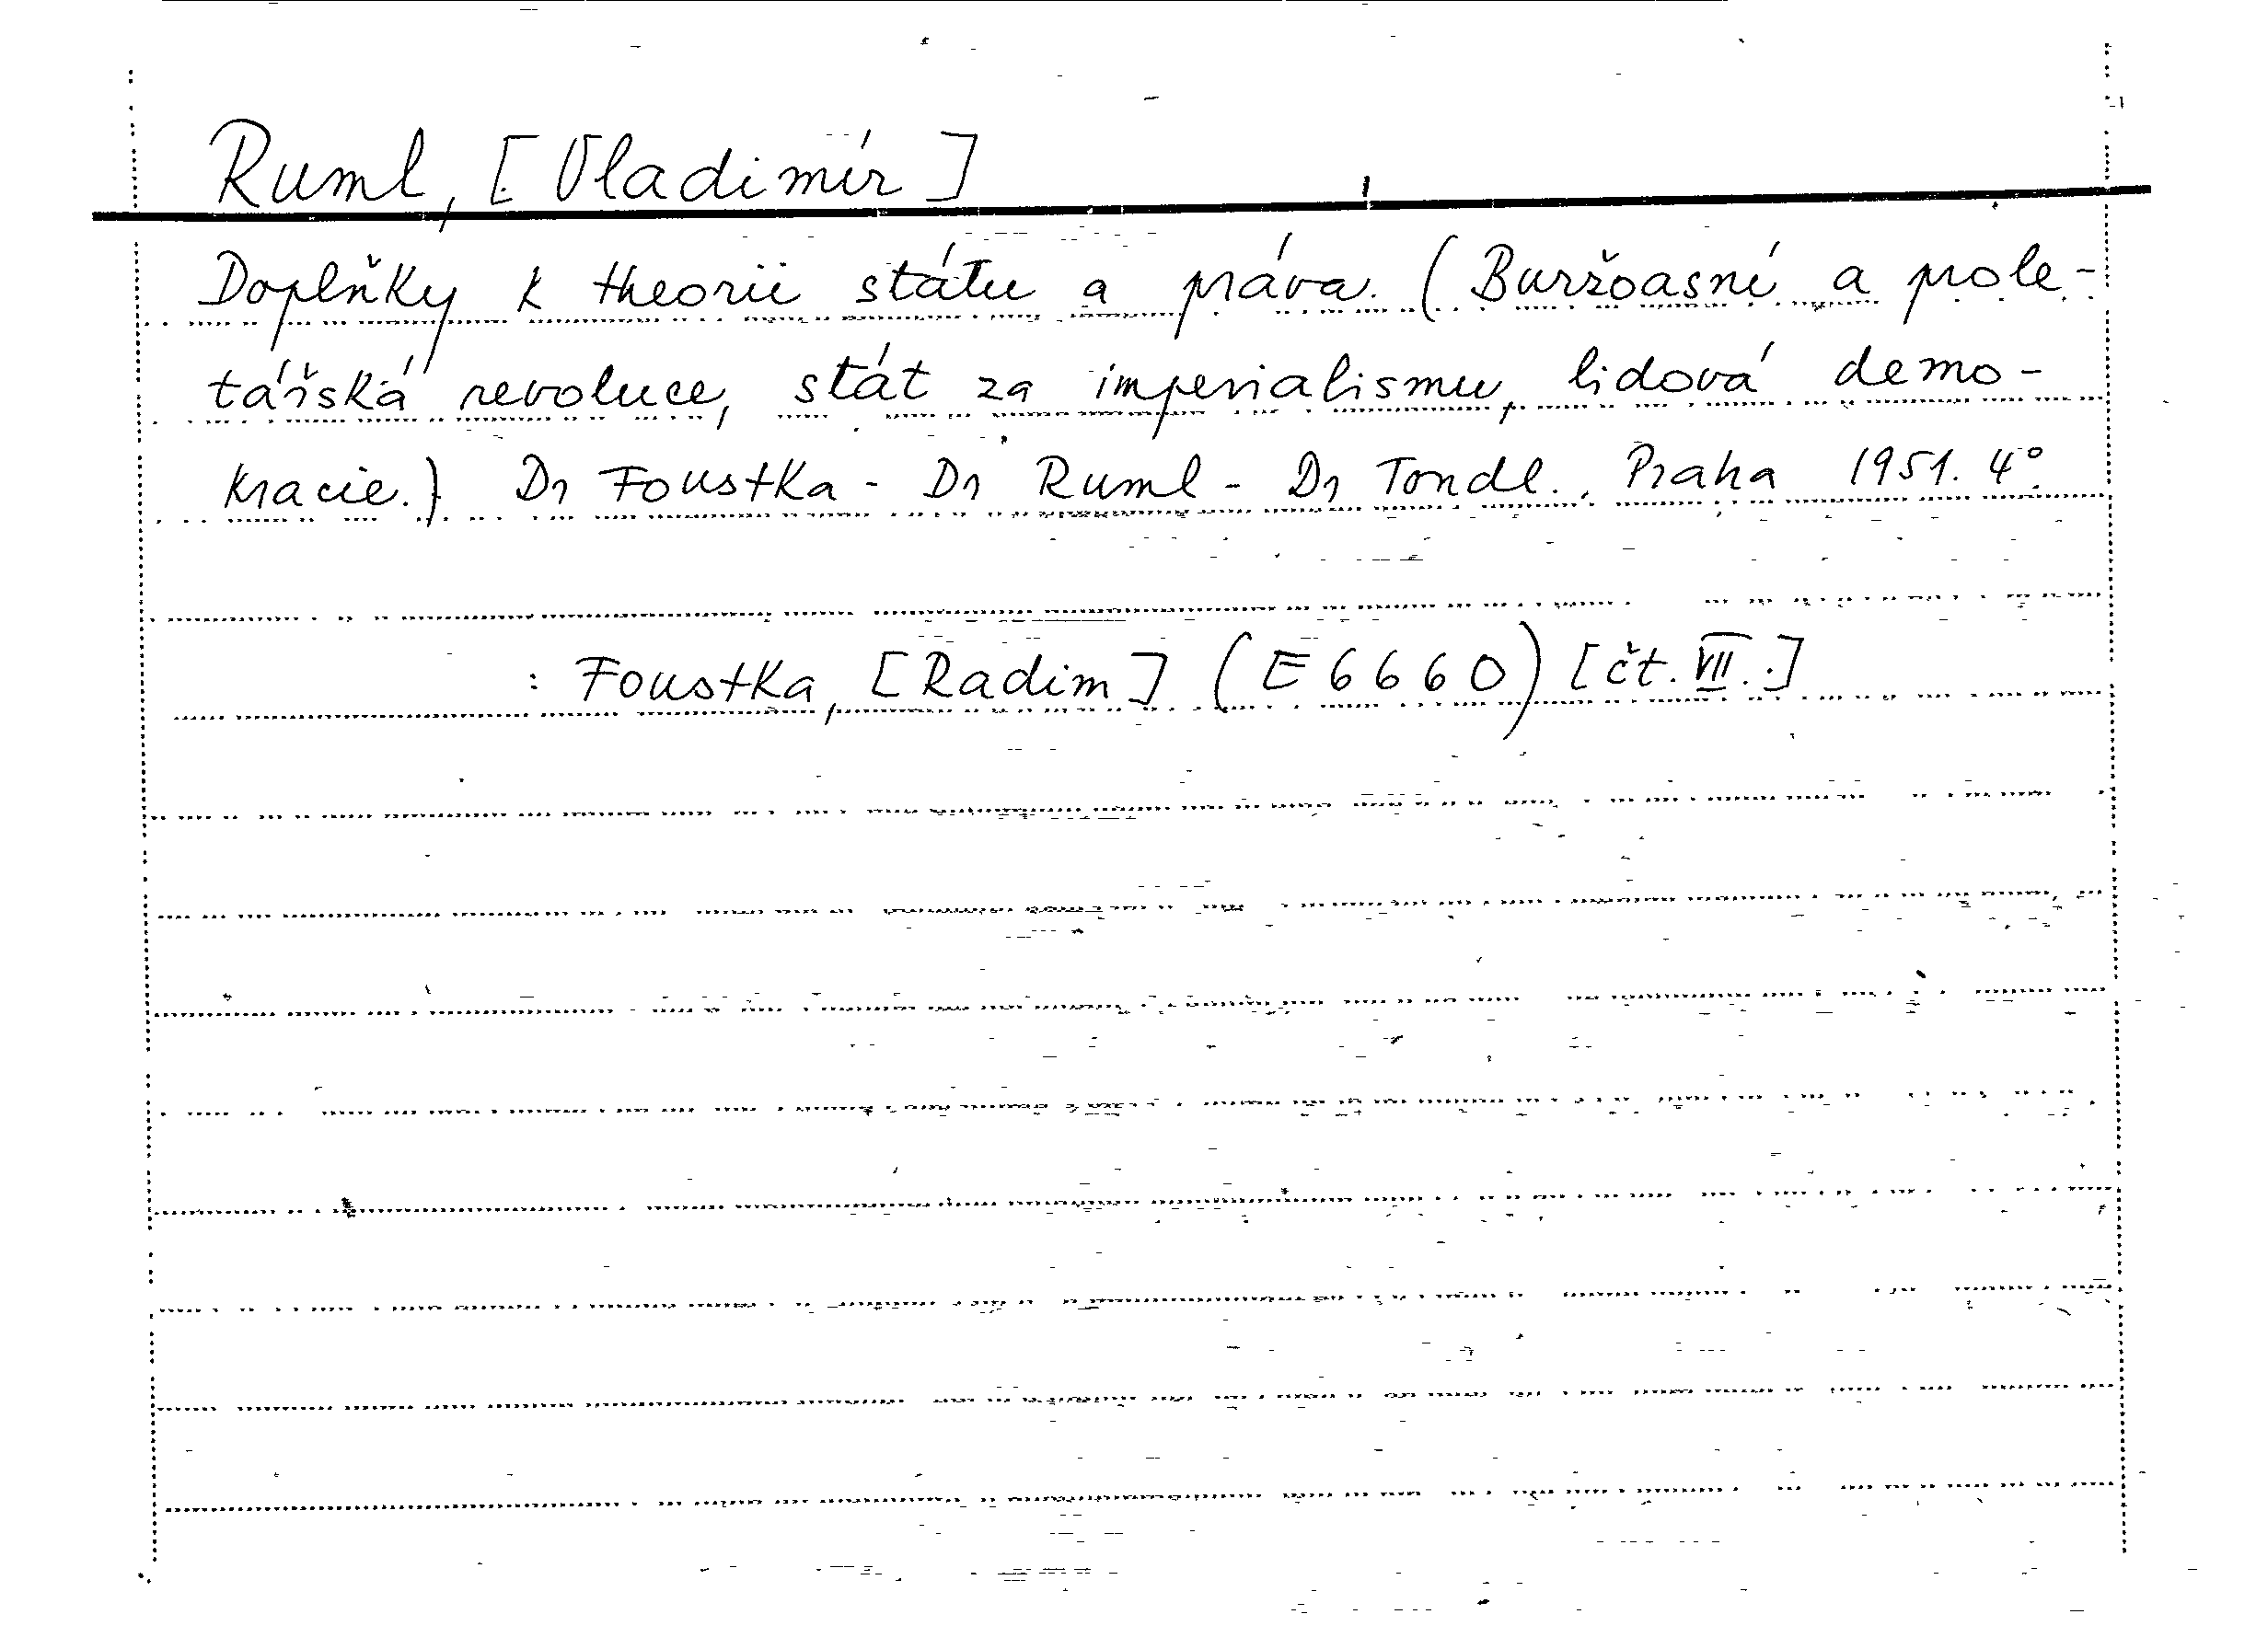 Ruml, [Vladimír]
Doplňky k theorii státu a práva. (Buržoasní a prole-
tářská revoluce, stát za imperialismu, lidová demo-
kracie.) Dr Foustka - Dr Ruml - Dr Tondl. Praha 1951. 4°.
: Foustka, [Radim] (E 6660) [čt. VII.]